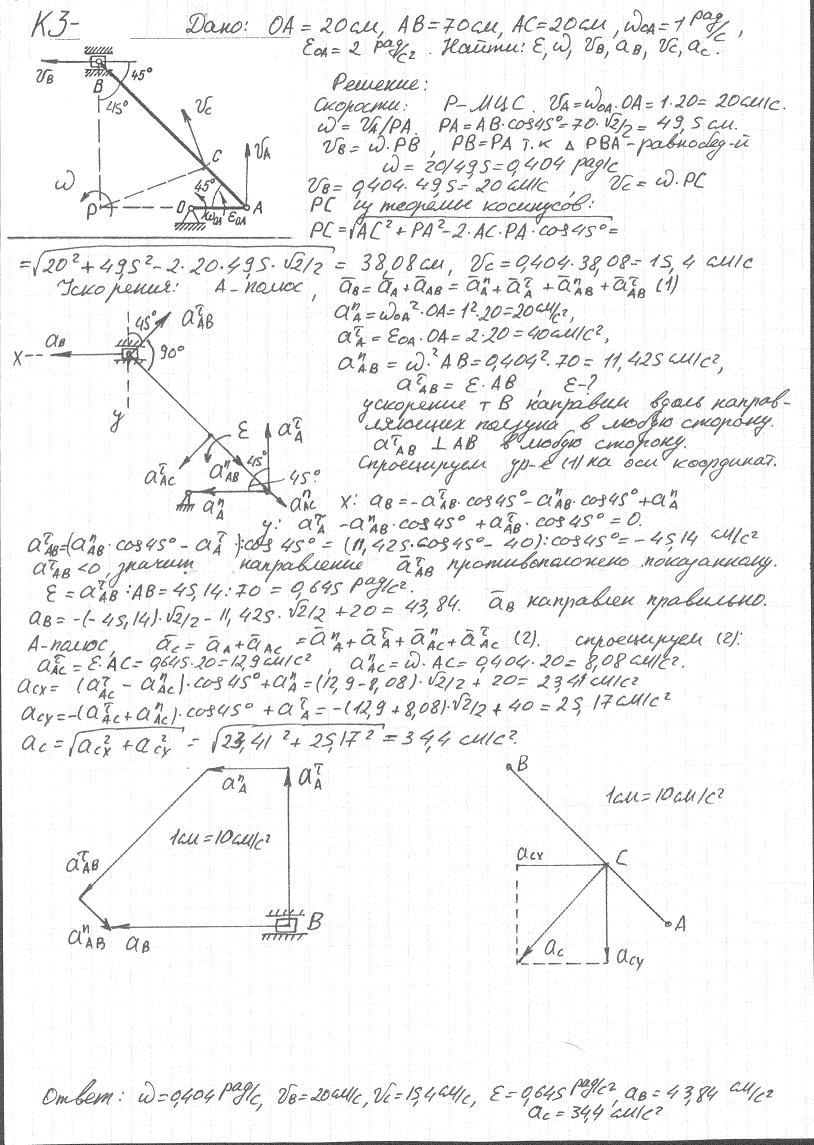 К3-
Дано: OA = 20см, AB = 70см, AC = 20см, ω_OA = 1 рад/с,
ε_OA = 2 рад/с². Найти: ε, ω, V_B, a_B, V_C, a_C.
V_B B 45° 45° V_C C V_A ω P 45° O ω_OA ε_OA A
Решение:
Скорости: P-МЦС. V_A = ω_OA·OA = 1·20 = 20см/с.
ω = V_A/PA. PA = AB·cos45° = 70·√2/2 = 49,5 см.
V_B = ω·PB, PB = PA т.к △ PBA - равнобед-й
ω = 20/49,5 = 0,404 рад/с
V_B = 0,404·49,5 = 20 см/с, V_C = ω·PC
PC из теоремы косинусов:
PC = √AC² + PA² - 2·AC·PA·cos45° =
= √20² + 49,5² - 2·20·49,5·√2/2 = 38,08см, V_C = 0,404·38,08 = 15,4 см/с
Ускорения: A-полюс, ā_B = ā_A + ā_AB = ā_A^n + ā_A^τ + ā_AB^n + ā_AB^τ (1)
a_A^n = ω_OA²·OA = 1²·20 = 20см/с²,
a_A^τ = ε_OA·OA = 2·20 = 40см/с²,
a_AB^n = ω²·AB = 0,404²·70 = 11,425 см/с²,
a_AB^τ = ε·AB, ε-?
ускорение т B направим вдоль направ-
ляющих ползуна в любую сторону.
a_AB^τ ⊥ AB в любую сторону.
Спроецируем ур-е (1) на оси координат.
x a_B 45° a_AB^τ 90° y ε a_A^τ a_AC^τ a_AB^n 45° 45° a_A^n a_AC^n
x: a_B = -a_AB^τ·cos45° - a_AB^n·cos45° + a_A^n
y: a_A^τ - a_AB^n·cos45° + a_AB^τ·cos45° = 0.
a_AB^τ = (a_AB^n·cos45° - a_A^τ):cos45° = (11,425·cos45° - 40):cos45° = -45,14 см/с²
a_AB^τ < 0, значит направление ā_AB^τ противоположено показанному.
ε = a_AB^τ:AB = 45,14:70 = 0,645 рад/с².
a_B = -(-45,14)·√2/2 - 11,425·√2/2 + 20 = 43,84. ā_B направлен правильно.
A-полюс, ā_C = ā_A + ā_AC = ā_A^n + ā_A^τ + ā_AC^n + ā_AC^τ (2). спроецируем (2):
a_AC^τ = ε·AC = 0,645·20 = 12,9 см/с², a_AC^n = ω·AC = 0,404·20 = 8,08 см/с².
a_CX = (a_AC^τ - a_AC^n)·cos45° + a_A^n = (12,9 - 8,08)·√2/2 + 20 = 23,41 см/с²
a_CY = -(a_AC^τ + a_AC^n)·cos45° + a_A^τ = -(12,9 + 8,08)·√2/2 + 40 = 25,17см/с²
a_C = √a_CX² + a_CY² = √23,41² + 25,17² = 34,4 см/с².
a_A^n a_A^τ
1см = 10см/с²
a_AB^τ
a_AB^n a_B B
B
1см = 10см/с²
a_CX C
A
a_C a_CY
Ответ: ω = 0,404 рад/с, V_B = 20см/с, V_C = 15,4см/с, ε = 0,645 рад/с², a_B = 43,84 см/с²
a_C = 34,4 см/с²